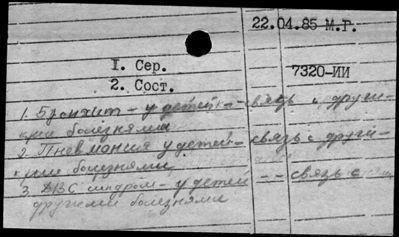 22.04.85 М.Г.
I. Сер.
7320-ИИ
2. Сост.
1. Бронхит - у детей - связь с други-
кими болезнями
2. Пневмония у детей - связь с други-
кими болезнями
3. ДВС синдром - у детей - - связь с
другими болезнями